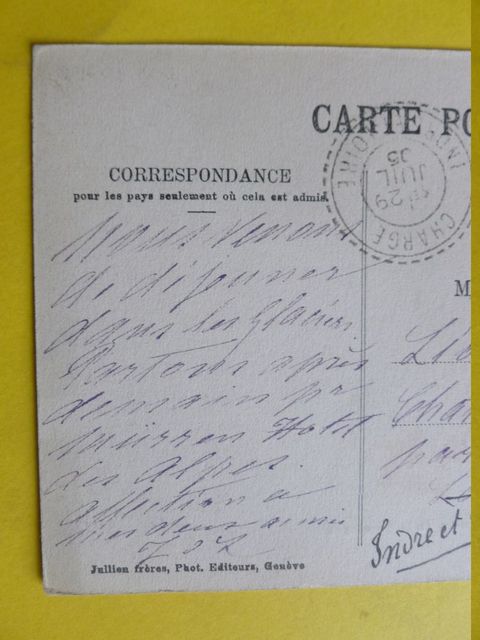 CARTE PO
CORRESPONDANCE
pour les pays seulement où cela est admis.
INDRE
LOIRE
CHARGÉ
29
JUIL
05
M
Nous venons
de déjeuner
dans les Glaciers.
Partons après
demain pr
Mürren Hotel
des Alpes.
affection a
mes deux amis
Léo
Char
par
Indre et
Jullien frères, Phot. Editeurs, Genève